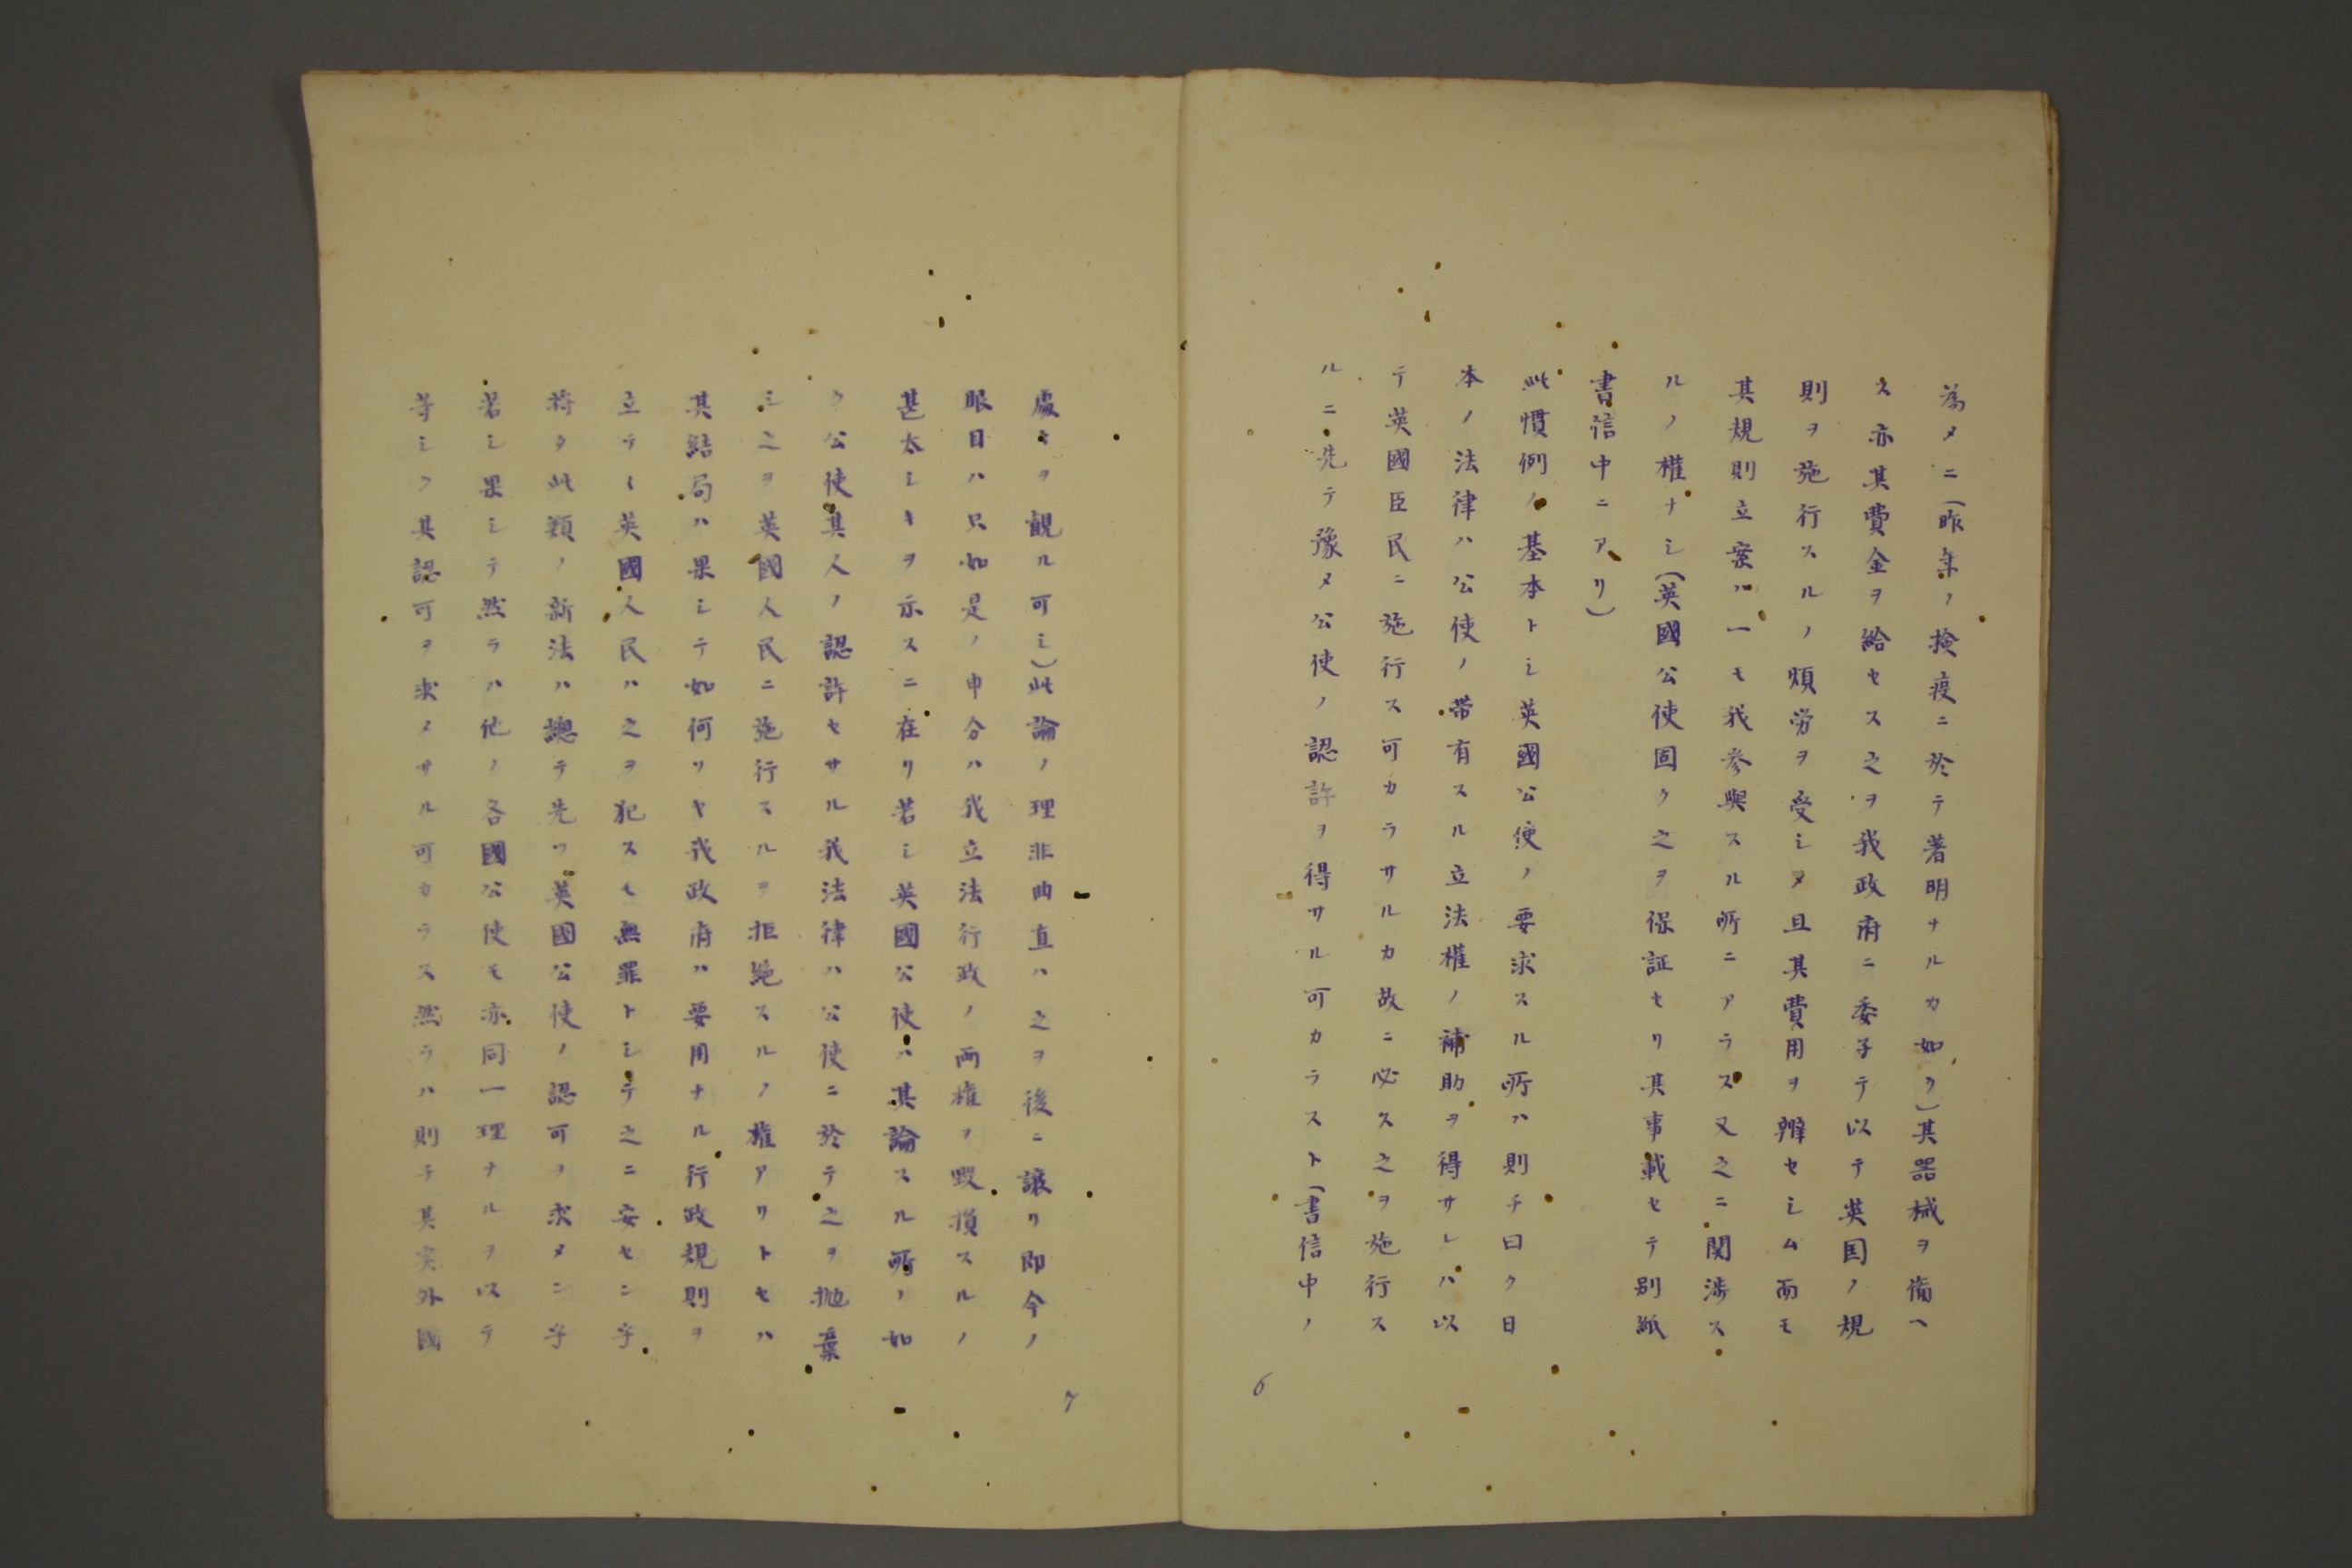 為メニ(昨年ノ検疫ニ於テ著明ナルカ如ク)其器械ヲ備ヘ
ス亦其費金ヲ給セス之ヲ我政府ニ委子テ以テ英国ノ規
則ヲ施行スルノ煩労ヲ受シメ且其費用ヲ辨セシム而モ
其規則立案ハ一モ我参與スル所ニアラス又之ニ関渉ス
ルノ權ナシ(英國公使固ク之ヲ保証セリ其事載セテ別紙
書信中ニアリ)
此慣例ノ基本トシ英國公使ノ要求スル所ハ則チ曰ク日
本ノ法律ハ公使ノ帯有スル立法權ノ補助ヲ得サレハ以
テ英國臣民ニ施行ス可カラサルカ故ニ必ス之ヲ施行ス
ルニ先テ豫メ公使ノ認許ヲ得サル可カラスト(書信中ノ
6
處々ヲ観ル可シ)此論ノ理非曲直ハ之ヲ後ニ譲リ即今ノ
眼目ハ只如是ノ申分ハ我立法行政ノ両権ヲ毀損スルノ
甚太シキヲ示スニ在リ若シ英國公使ハ其論スル所ノ如
ク公使其人ノ認許セサル我法律ハ公使ニ於テ之ヲ抛棄
シ之ヲ英國人民ニ施行スルヲ拒絶スルノ権アリトセハ
其結局ハ果シテ如何ソヤ我政府ハ要用ナル行政規則ヲ
立テヽ英國人民ハ之ヲ犯スモ無罪トシテ之ニ安セン乎
将タ此類ノ新法ハ總テ先ツ英國公使ノ認可ヲ求メン乎
若シ果シテ然ラハ他ノ各國公使モ亦同一理ナルヲ以テ
等シク其認可ヲ求メサル可カラス然ラハ則チ其実外國
7